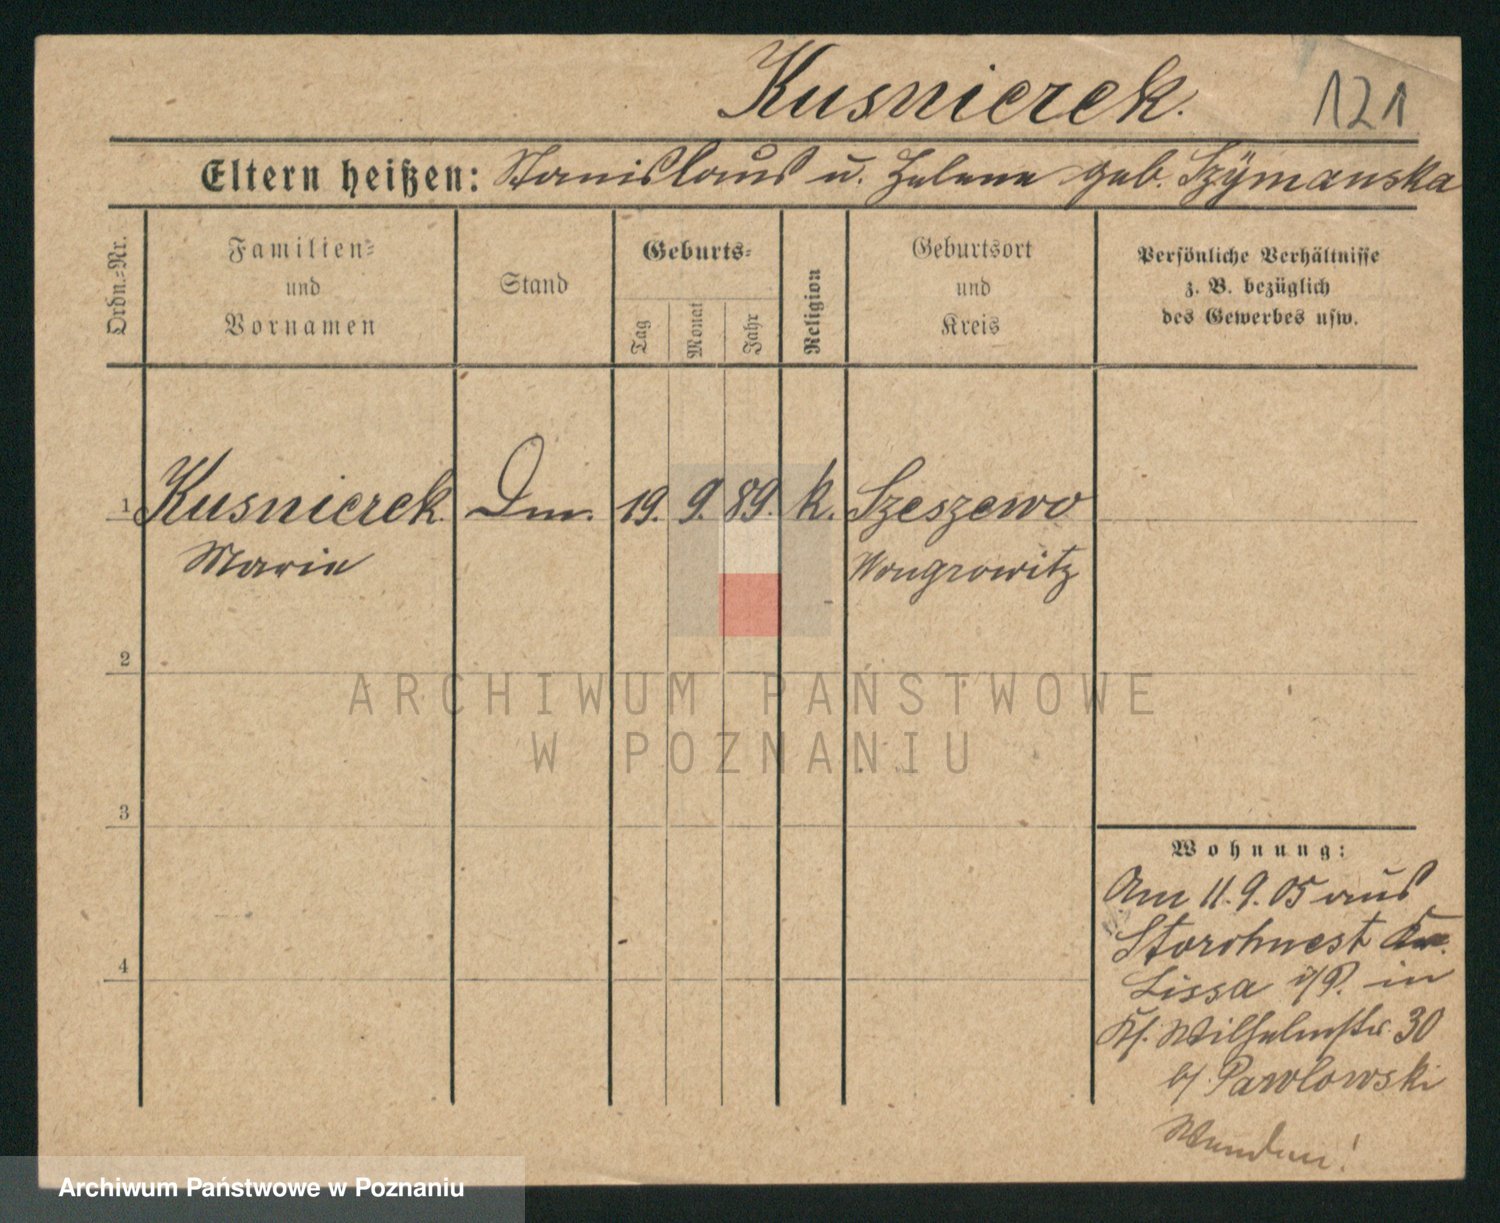 Kusnierek.
121
Eltern heißen: Stanislaus u. Helene geb. Szymanska
Ordn.-Nr.
Familien-
und
Vornamen
Stand
Geburts-
Tag
Monat
Jahr
Religion
Geburtsort
und
Kreis
Persönliche Verhältnisse
z. B. bezüglich
des Gewerbes usw.
1 Kusnierek. 19. 9. 89. k. Szeszewo
Marie Wongrowitz
2
ARCHIWUM PAŃSTWOWE
W POZNANIU
3
4
Wohnung:
Am 11.9.05 aus
Storchnest
Lissa i/P. in
Wilhelmstr. 30
b/. Pawlowski
Archiwum Państwowe w Poznaniu